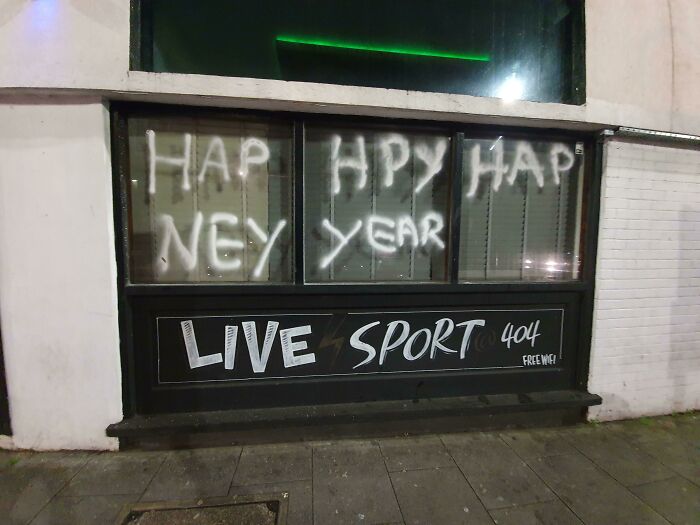 HAP HPY HAP
NEY YEAR
LIVE SPORT @ 404
FREE WIFI